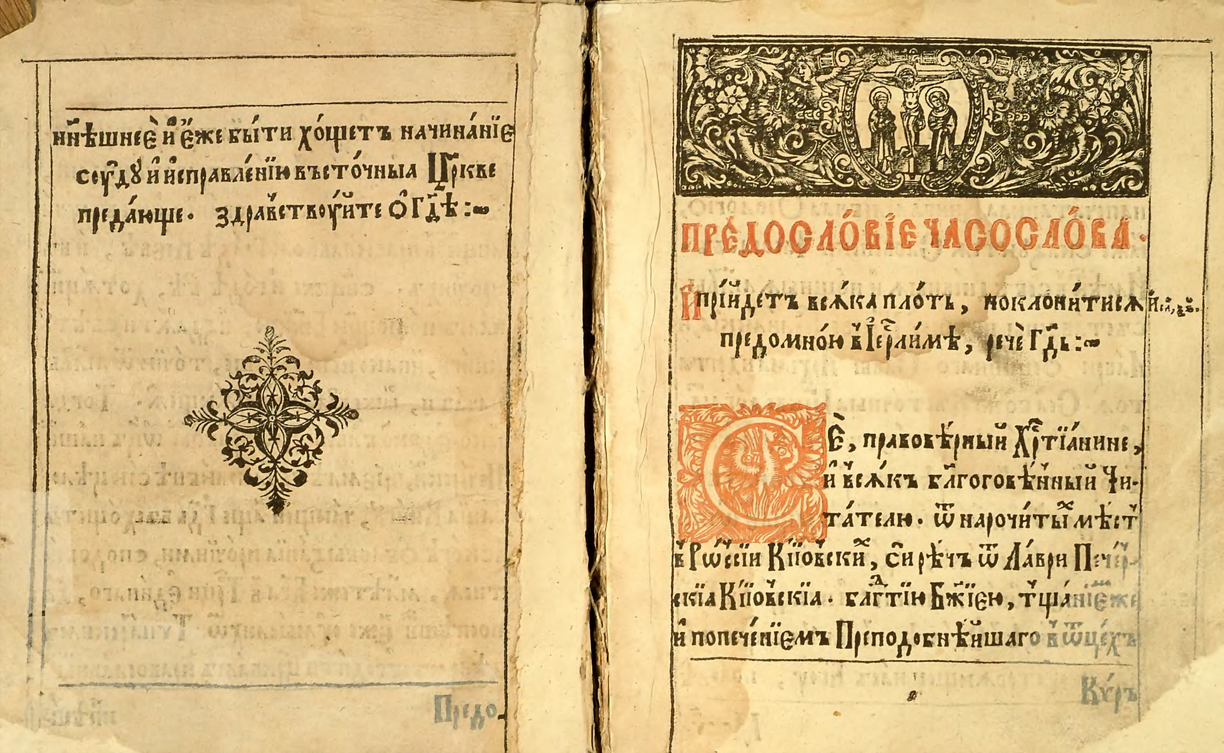 нн҃ѣшнее҆ и҆ е҆́же бы́ти хо́щетъ начина́нїе
соу҆́дꙋ и҆ и҆справле́нїю въсто́чныа Цр҃кве
преда́юще. здра́вствоуйте ѡ҆ Гд҃ѣ:~
Предо.
ПРЕДОСЛО́ВІЕ ЧАСОСЛО́ВА.
И҆ прїи́детъ всѧ́ка пло́ть, поклони́тисѧ
предомно́ю в̾ І҆ерⷭ҇ли́мѣ, рече́ Гд҃ь:~
СЕ́, правовѣ́рный Хрⷭ҇тїа́нине,
и҆ всѧ́къ бл҃гоговѣ́нный Чи-
та́телю. ѿ нарочи́тыⷯ мѣ́ст
в̾ Рѡ́ссїи Кїѡвскиⷯ, си́рѣчъ ѿ Ла́ври Пече́р-
скїа Кїѡвскїа. бл҃гⷣтїю Бж҃їею, тща́нїем же
и҆ попече́нїемъ Преподобнѣ́йшаго в̾ ѿце́хъ
Кѵ́ръ